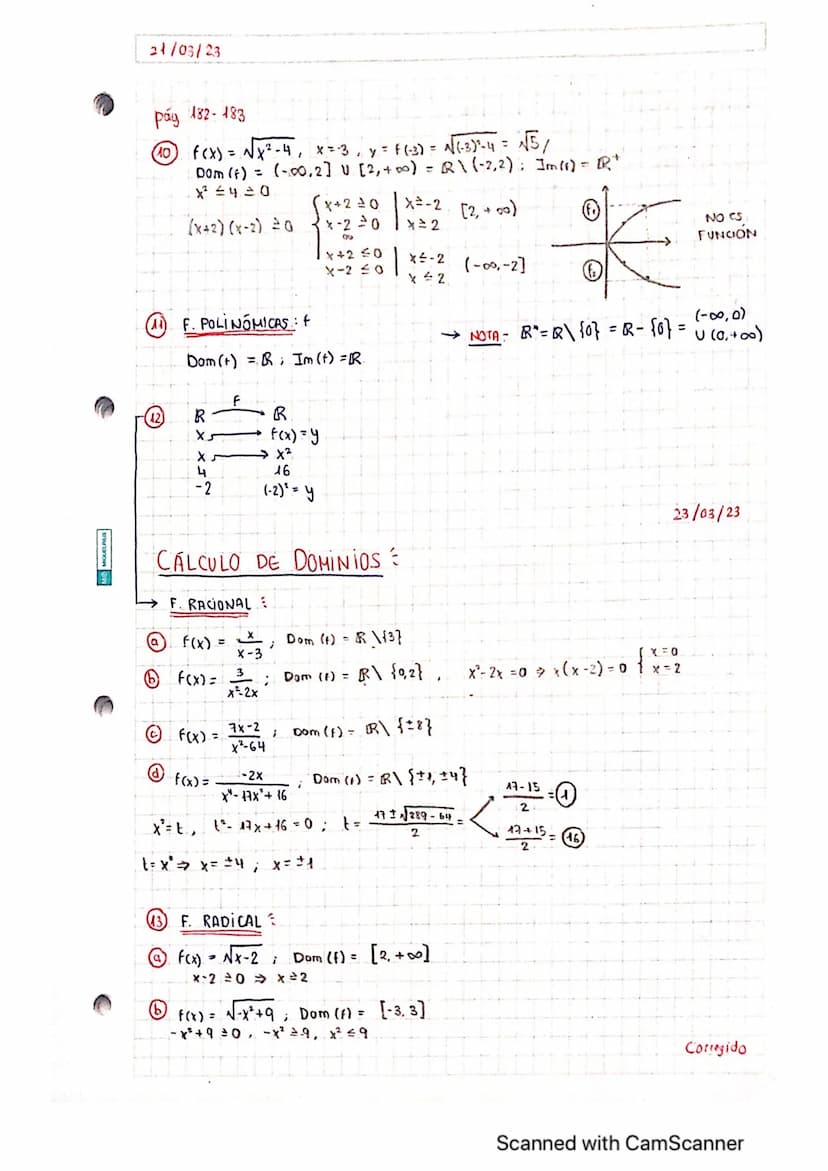 21/03/23
pág 182-183
10 f(x) = √x²-4, x=-3, y = f(-3) = √(-3)²-4 = √5/
Dom(f) = (-∞,2] ∪ [2,+∞) = ℝ\(-2,2); Im(f) = ℝ⁺
x² ≤ 4 ≥ 0
(x+2)(x-2) ≥ 0
{ x+2 ≥ 0 | x ≥ -2 [2,+∞)
x-2 ≥ 0 | x ≥ 2
x+2 ≤ 0 | x ≤ -2 (-∞,-2]
x-2 ≤ 0 | x ≤ 2
f₁
f₂
NO ES
FUNCIÓN
11 F. POLINÓMICAS: f
Dom(f) = ℝ; Im(f) = ℝ
→ NOTA- ℝ* = ℝ\{0} = ℝ-{0} = (-∞,0)
∪ (0,+∞)
12 ℝ F→ ℝ
x → f(x) = y
x → x²
4 16
-2 (-2)² = y
23/03/23
MIQUELRIUS
CÁLCULO DE DOMINIOS:
→ F. RACIONAL:
a f(x) = x/x-3; Dom(f) = ℝ\{3}
b f(x) = 3/x²-2x; Dom(f) = ℝ\{0,2}, x²-2x=0 ⇒ x(x-2)=0 { x=0
x=2
c f(x) = 7x-2/x²-64; Dom(f) = ℝ\{±8}
d f(x) = -2x/x⁴-17x²+16; Dom(f) = ℝ\{±1,±4}
x²=t, t²-17x+16=0; t = 17±√289-64/2 = 17-15/2 = 1
17+15/2 = 16
t=x² ⇒ x=±4; x=±1
13 F. RADICAL:
a f(x) = √x-2; Dom(f) = [2,+∞]
x-2 ≥ 0 ⇒ x ≥ 2
b f(x) = √-x²+9; Dom(f) = [-3,3]
-x²+9 ≥ 0, -x² ≥ 9, x² ≤ 9
Corregido
Scanned with CamScanner